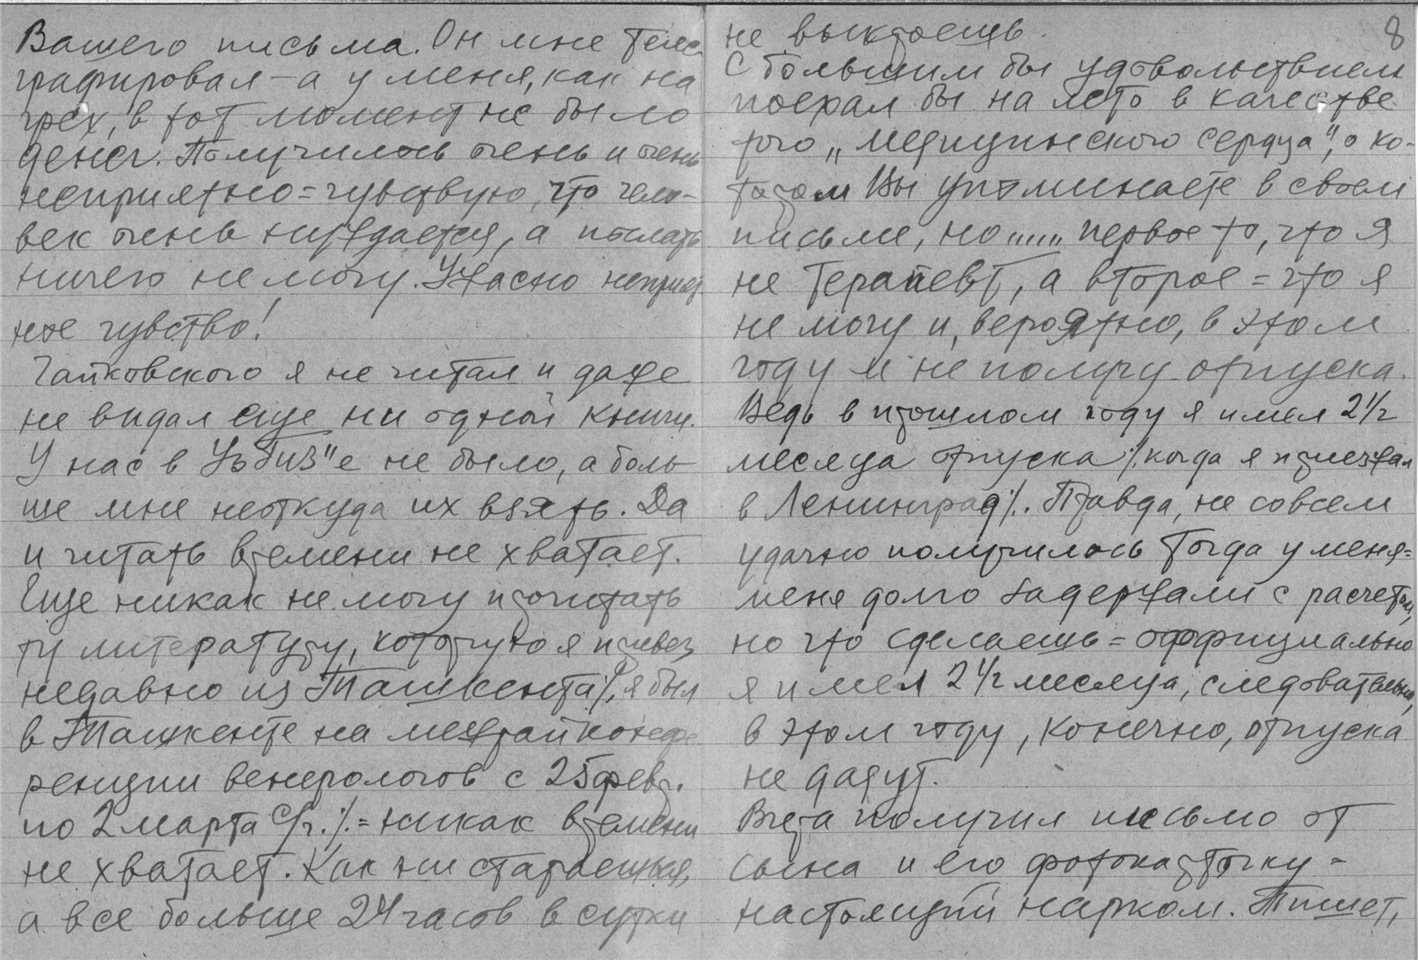 Вашего письма. Он мне теле-
графировал – а у меня, как на
грех, в тот момент не было
денег. Получилось очень и очень
неприятно = чувствую, что чело-
век очень нуждается, а послать
ничего не могу. Ужасно неприят-
ное чувство!
Чайковского я не читал и даже
не видал еще ни одной книги.
У нас в Узбгиз"е не было, а боль-
ше мне неоткуда их взять. Да
и читать времени не хватает.
Еще никак не могу прочитать
ту литературу, которую я привез
недавно из Ташкента /. я был
в Ташкенте на межрайконфе-
ренции венерологов с 25 февр.
по 2 марта с/г. /. = никак времени
не хватает. Как ни стараешься,
а все больше 24 часов в сутки
8
не выкроешь.
С большим бы удовольствием
поехал бы на лето в качестве
того „медицинского сердца", о ко-
тором Вы упоминаете в своем
письме, но ..... первое то, что я
не терапевт, а второе = что я
не могу и, вероятно, в этом
году и не получу отпуска.
Ведь в прошлом году я имел 2 1/2
месяца отпуска /. когда я приезжал
в Ленинград /. Правда, не совсем
удачно получилось тогда у меня =
меня долго задержали с расчетом,
но что сделаешь = оффициально
я имел 2 1/2 месяца, следовательно,
в этом году, конечно, отпуска
не дадут.
Вчера получил письмо от
сына и его фотокарточку =
настоящий нарком. Пишет,